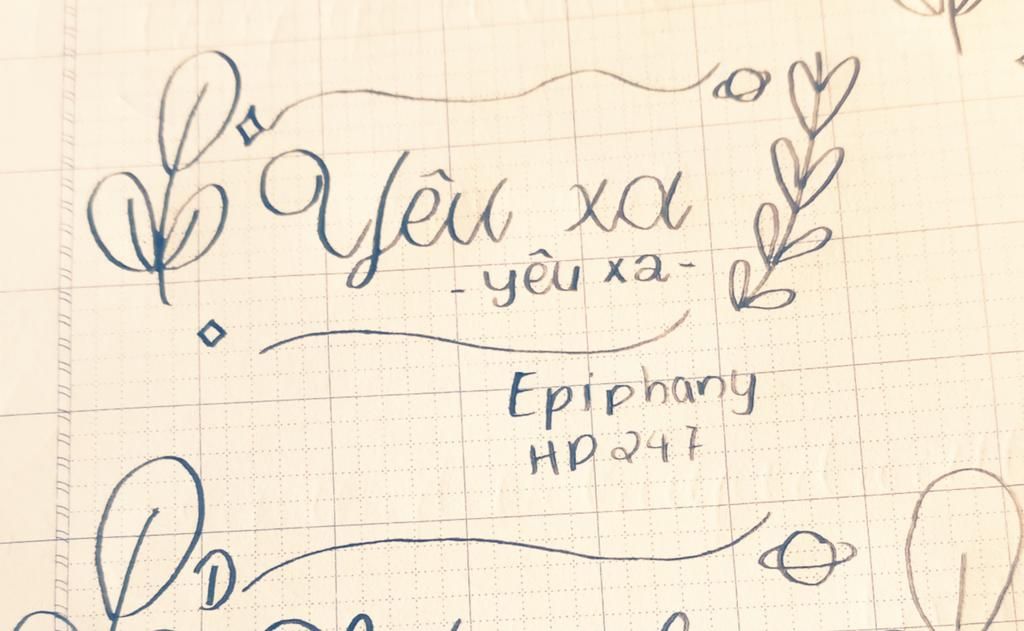 Yêu xa
- yêu xa -
Epiphany
HD 247
D